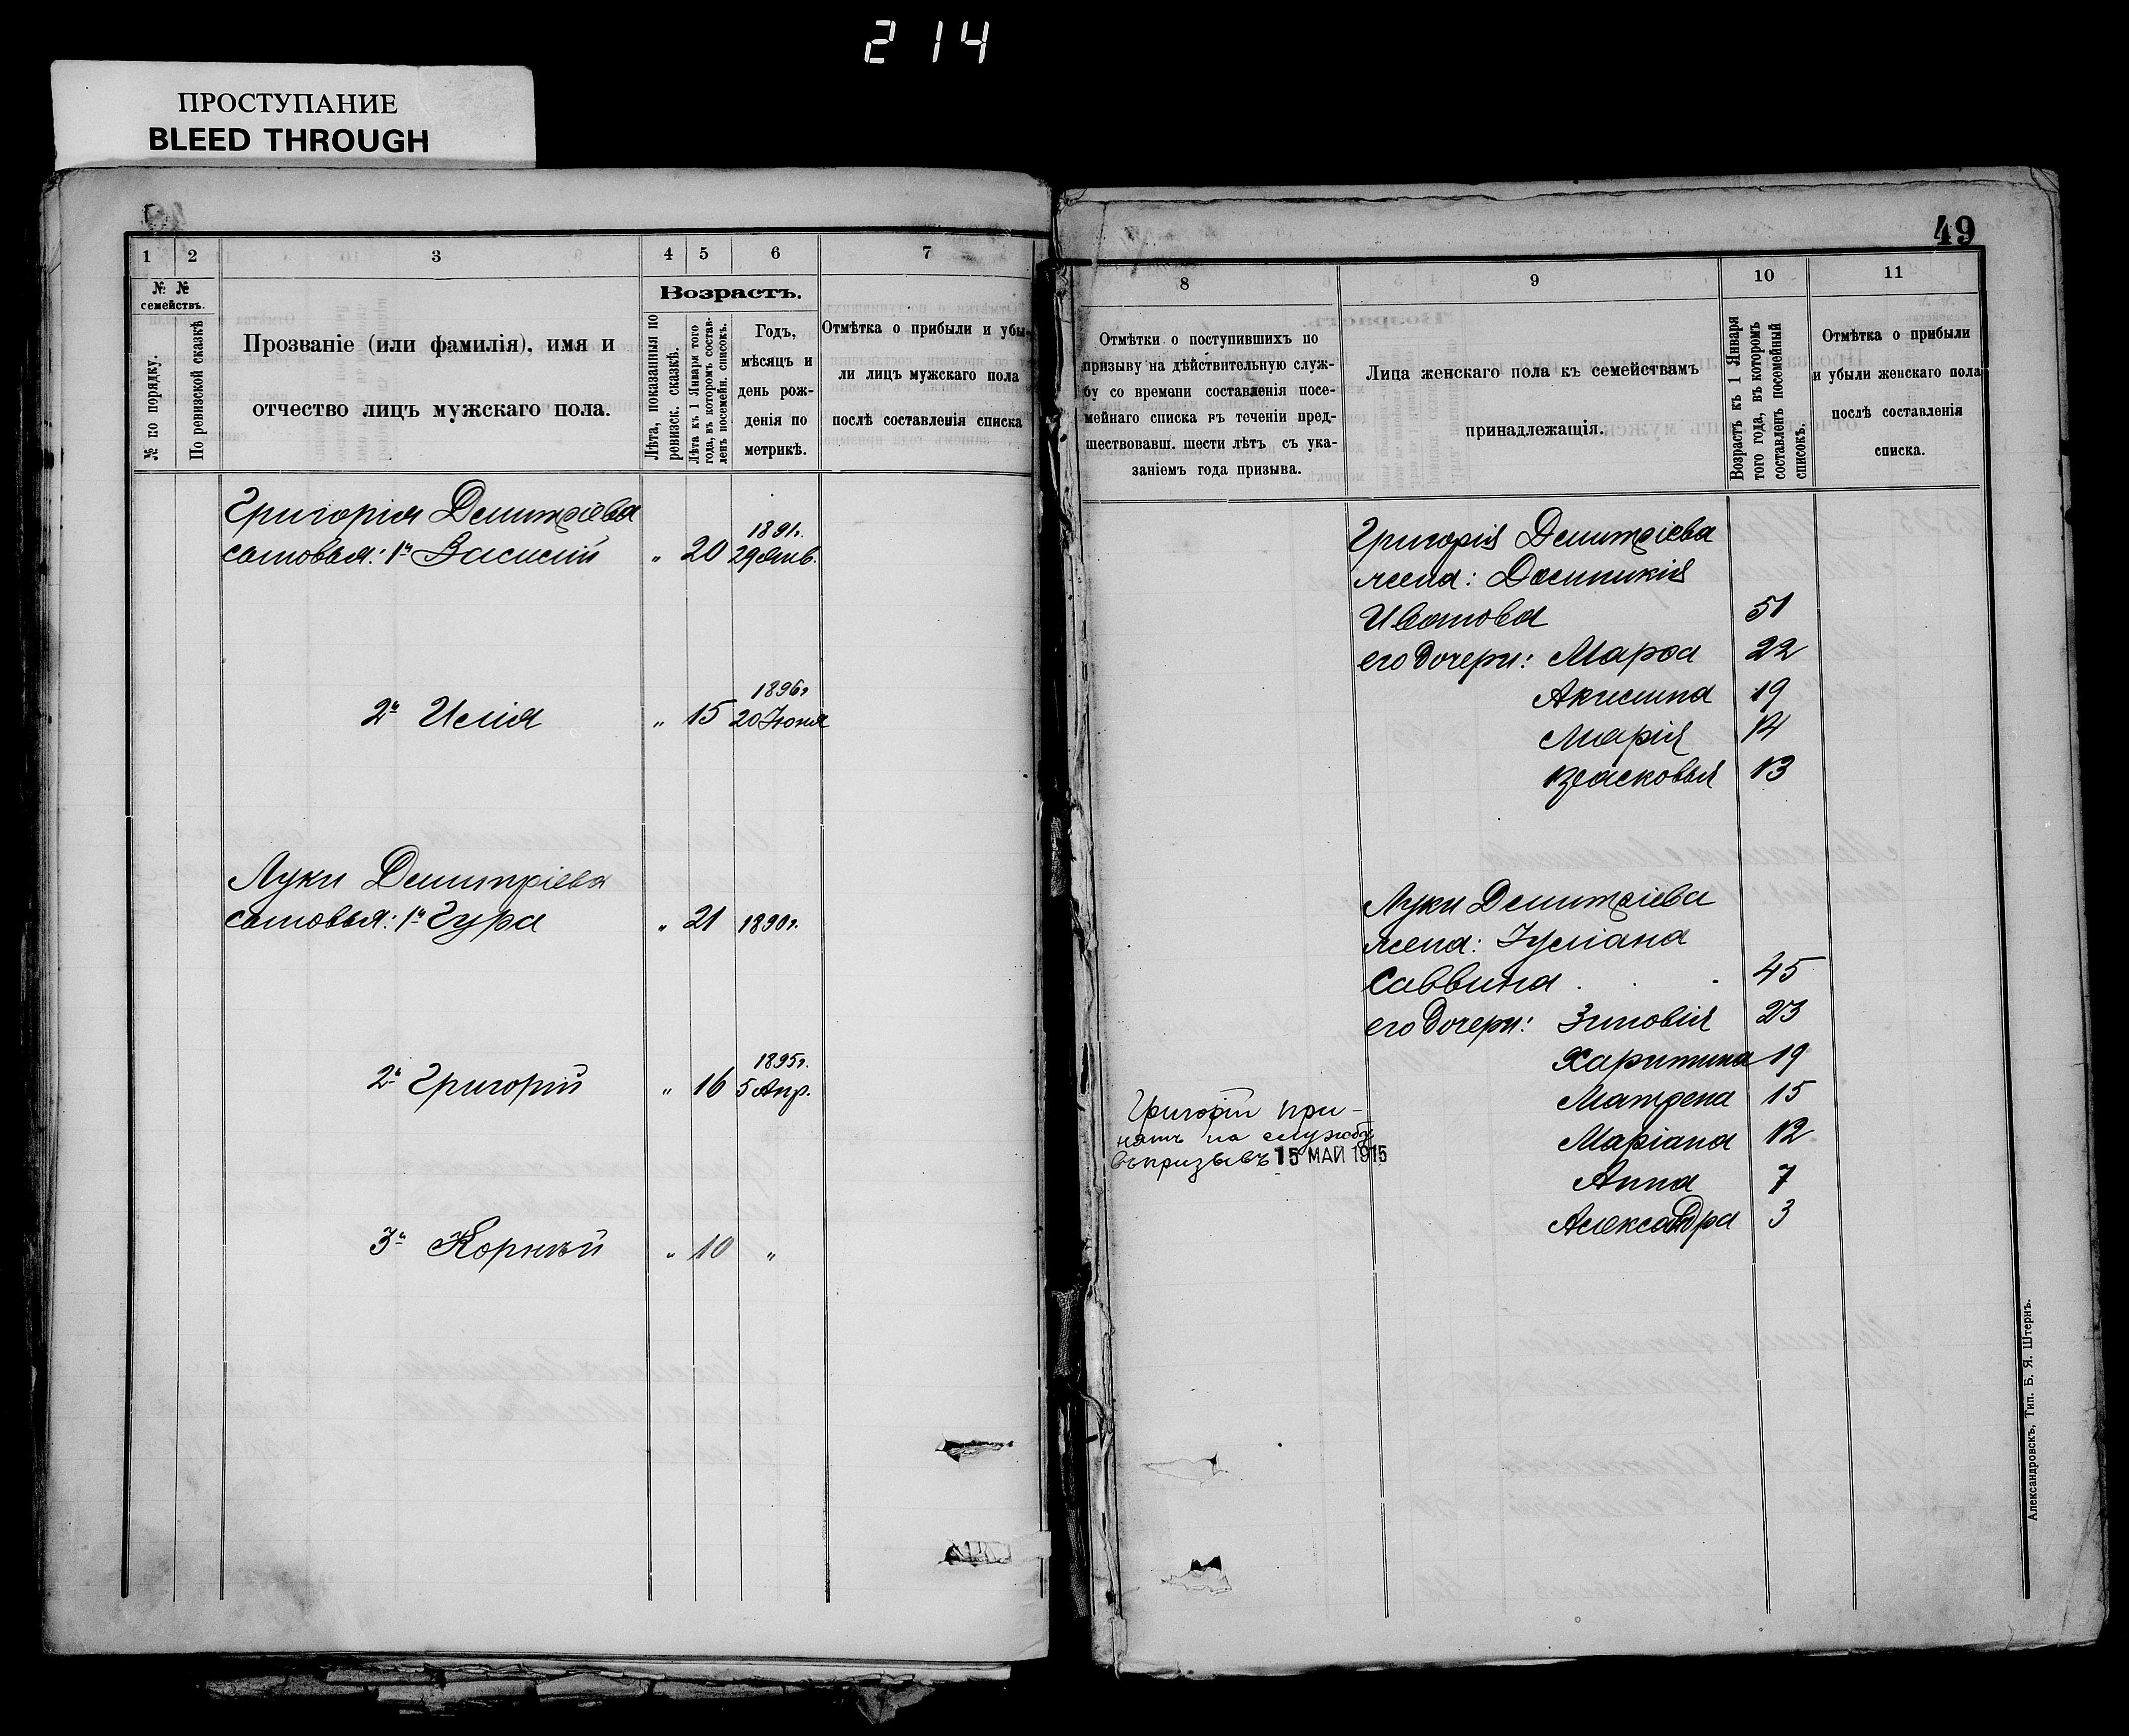 214
ПРОСТУПАНИЕ
BLEED THROUGH
1
2
3
4
5
6
7
№ №
семействъ.
№ по порядку.
По ревизской сказкѣ
Прозваніе (или фамилія), имя и
отчество лицъ мужскаго пола.
Возрастъ.
Лѣта, показанныя по
ревизск. сказкѣ.
Лѣта къ 1 Января того
года, въ которомъ состав-
ленъ посемейн. списокъ.
Годъ,
мѣсяцъ и
день рож-
денія по
метрикѣ.
Отмѣтка о прибыли и убы-
ли лицъ мужскаго пола
послѣ составленія списка
Григорія Демитріева
сыновья: 1й Василій " 20 1891г. 29 Янв.
2й Илія " 15 1896г 20 Іюня
Луки Демитріева
сыновья: 1й Гура " 21 1890г.
2й Григорій " 16 1895г. 5 Апр.
3й Корнѣй " 10 "
49
8
9
10
11
Отмѣтки о поступившихъ по
призыву на дѣйствительную служ-
бу со времени составленія посе-
мейнаго списка въ теченіи пред-
шествовавш. шести лѣтъ съ ука-
заніемъ года призыва.
Лица женскаго пола къ семействамъ
принадлежащія.
Возрастъ къ 1 Января
того года, въ которомъ
составленъ посемейный
списокъ.
Отмѣтка о прибыли
и убыли женскаго пола
послѣ составленія
списка.
Григорія Демитріева
жена: Домникія
Ивановa 51
его дочери: Марѳа 22
Акилина 19
Марія 14
Парасковья 13
Луки Демитріева
жена: Іуліана
Саввина 45
его дочери: Зиновія 23
Харитина 19
Матрена 15
Маріана 12
Анна 7
Александра 3
Григорій при-
нятъ на службу
въ призывъ 15 МАЙ 1915
Александровскъ, Тип. Б. Я. Штернъ.